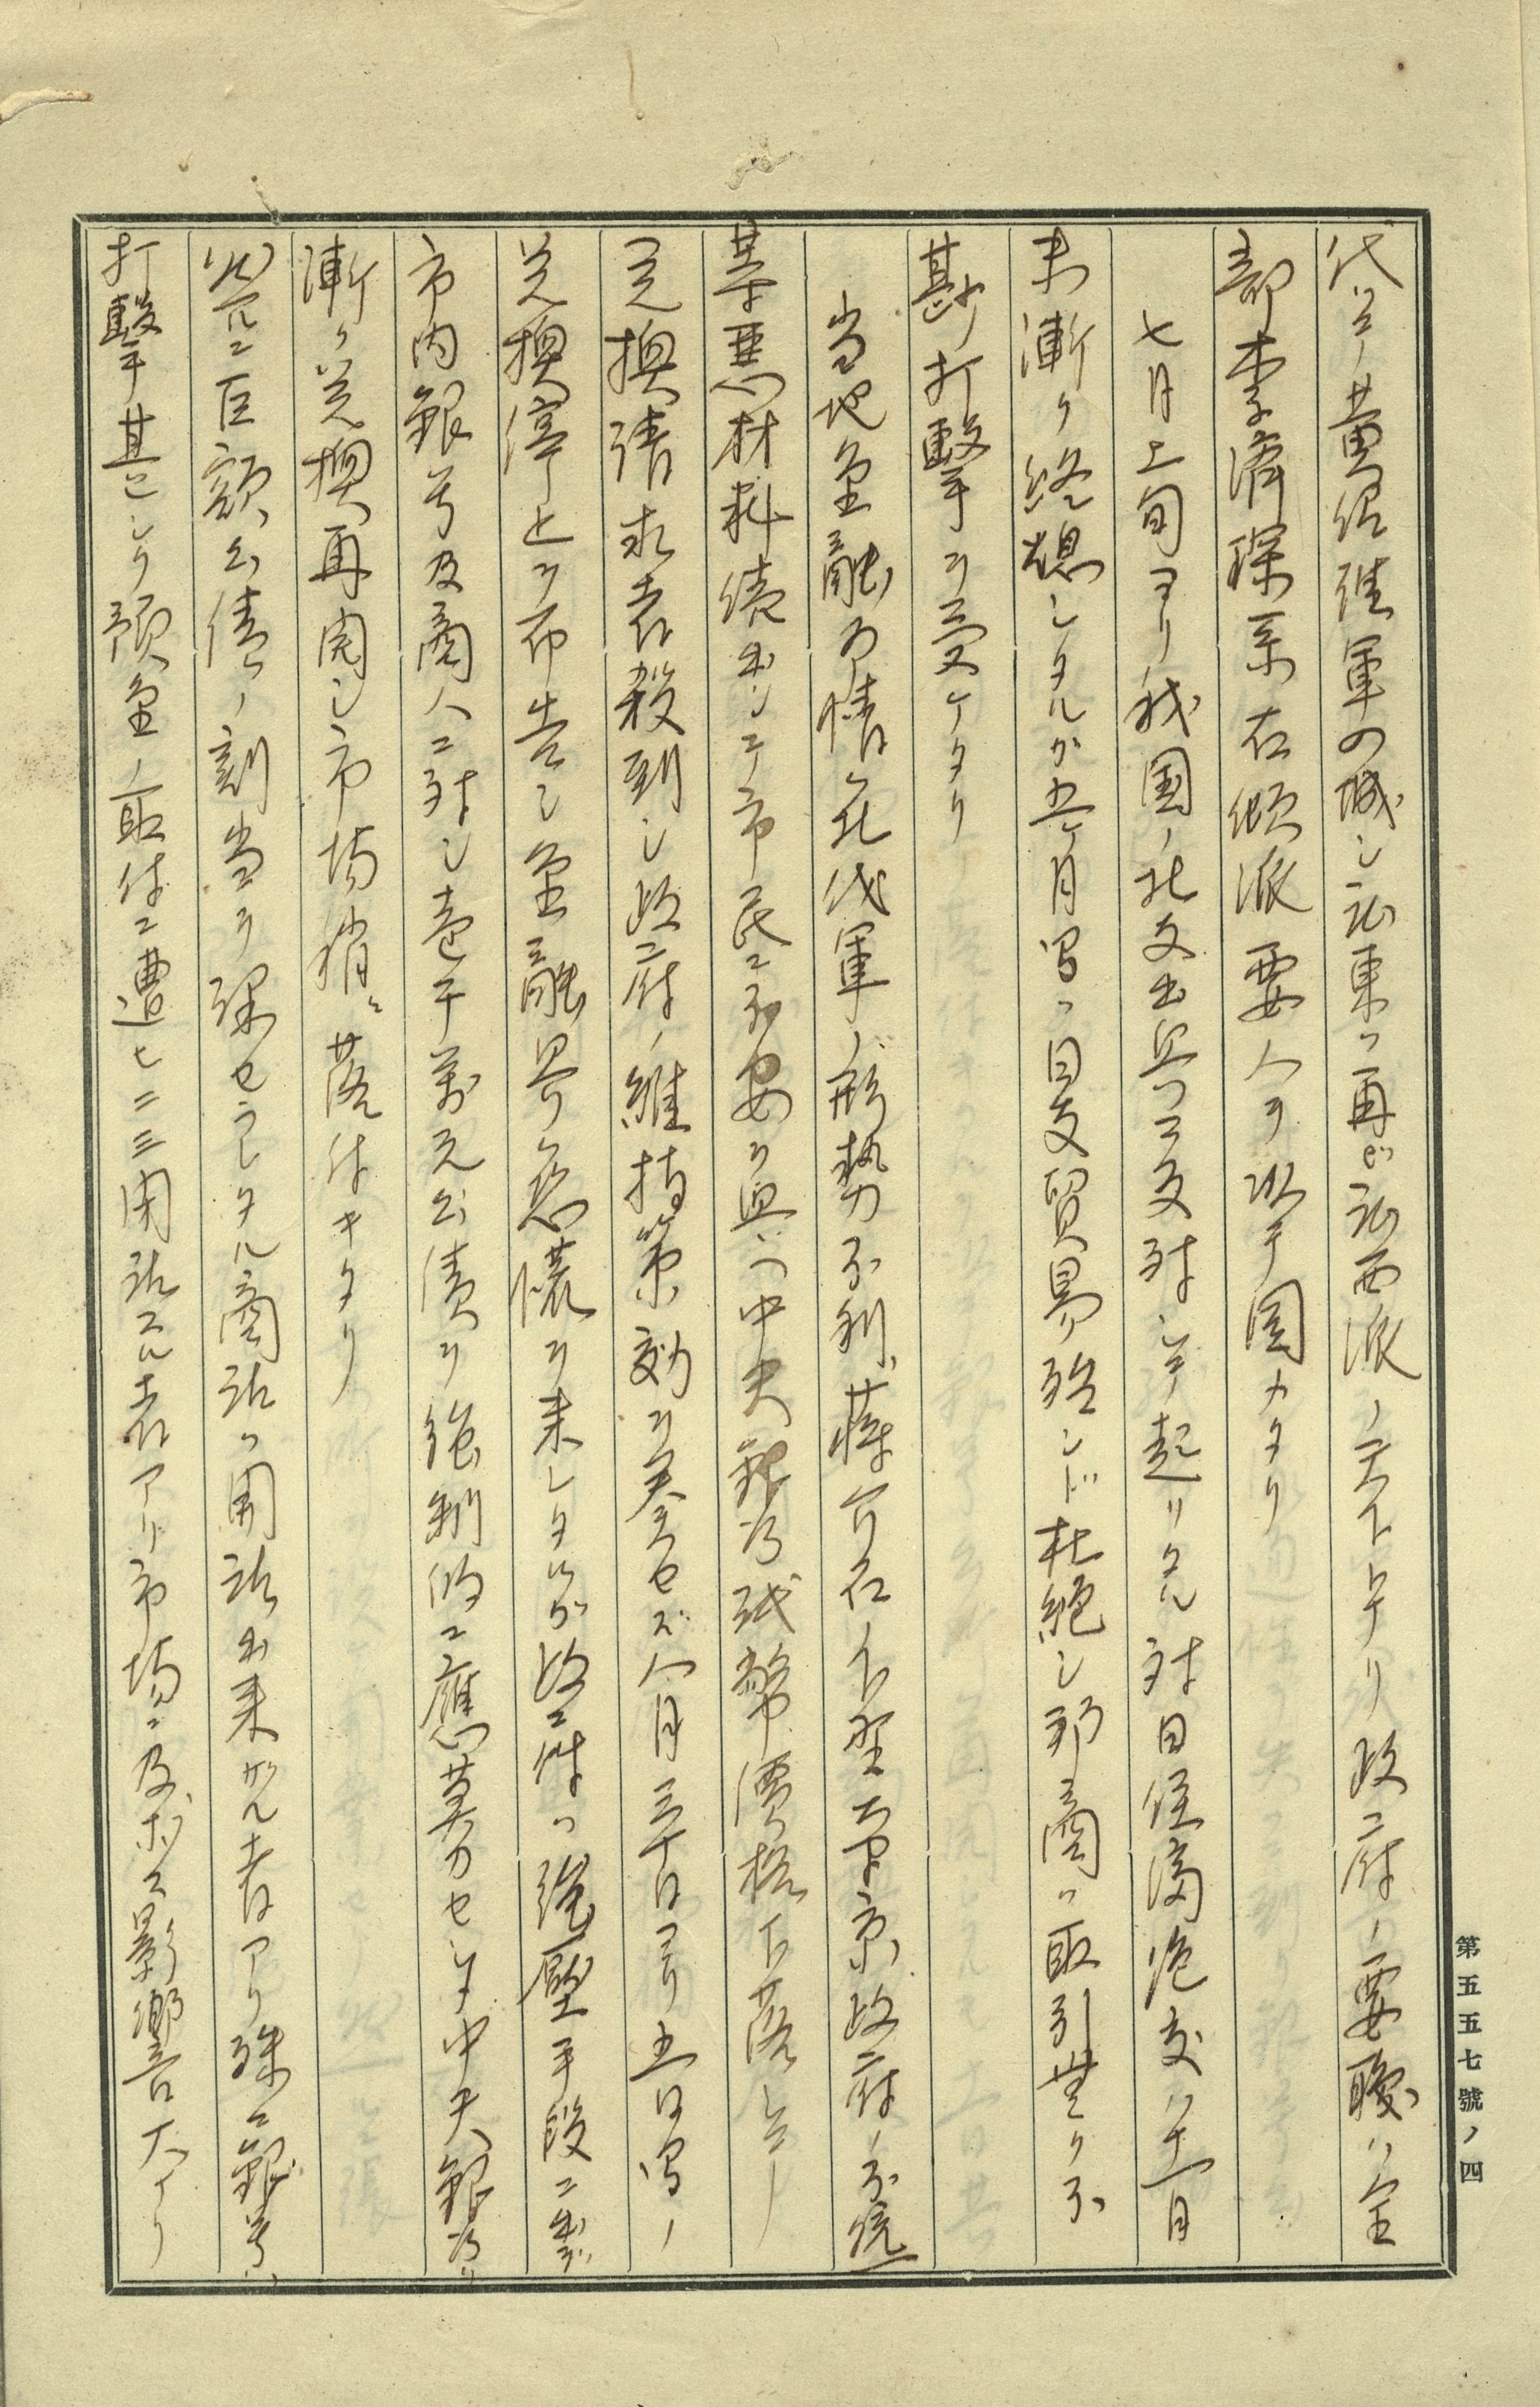 代ツテ黄紹雄軍の城シ広東ハ再ビ広西派ノ天下トナリ政府ノ要職ハ全
部李済琛系右傾派要人ヲ以テ固メタリ
七月上旬ヨリ我国ノ北支出兵ニ反対シテ起リタル対日経済絶交ハ十一月
末漸ク終熄シタルガ五ヶ月間ハ日支貿易殆ンド杜絶シ邦商ハ取引無ク不
尠打撃ヲ受ケタリ
当地金融事情ハ北伐軍ノ形勢不利、蒋介石下野南京政府ノ不統一
等悪材料続出シテ市民ニ不安ヲ与ヘ中央銀行紙幣価格下落シテ
兌換請求者殺到シ政府ノ維持策効ヲ奏セズ八月三十日ヨリ五日間ノ
兌換停止ヲ布告シ金融界ノ恐慌ヲ来シタルガ政府ハ強圧手段ニ出デ
市内銀号及商人ニ対シ壱千万元公債ヲ強制的ニ應募セシメ中央銀行ハ
漸ク兌換再開シ市場稍々落付キタリ
然ルニ巨額公債ノ割当ヲ課セラレタル商店ハ開店出来ザル者アリ殊ニ銀号ハ
打撃甚シク預金ノ取付ニ遭ヒ二三閉店スル者アリ市場ニ及ボス影響大ナリ
第五五七號ノ四